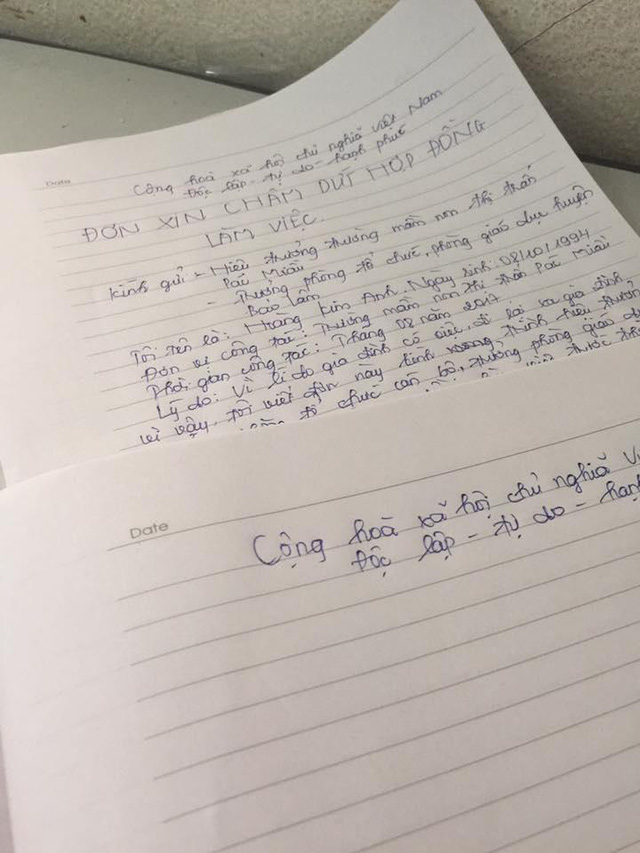 Date
Cộng hoà xã hội chủ nghĩa Việt Nam
Độc lập - tự do - hạnh phúc
ĐƠN XIN CHẤM DỨT HỢP ĐỒNG
LÀM VIỆC.
Kính gửi - Hiệu trưởng trường mầm non thị trấn
Pác Miầu
- Trưởng phòng tổ chức, phòng giáo dục huyện
Bảo Lâm
Tôi tên là: Hoàng Kim Anh. Ngày sinh 08/10/1994
Đơn vị công tác: Trường mầm non thị trấn Pác Miầu
Thời gian công tác: Tháng 02 năm 2017
Lý do: Vì lí do gia đình có việc, đi lại xa gia đình,
vì vậy, tôi viết đơn này kính mong Thính hiệu trưởng
tổ chức cán bộ, trưởng phòng giáo dụ
Date
Cộng hoà xã hội chủ nghĩa V
Độc lập - tự do - hạnh